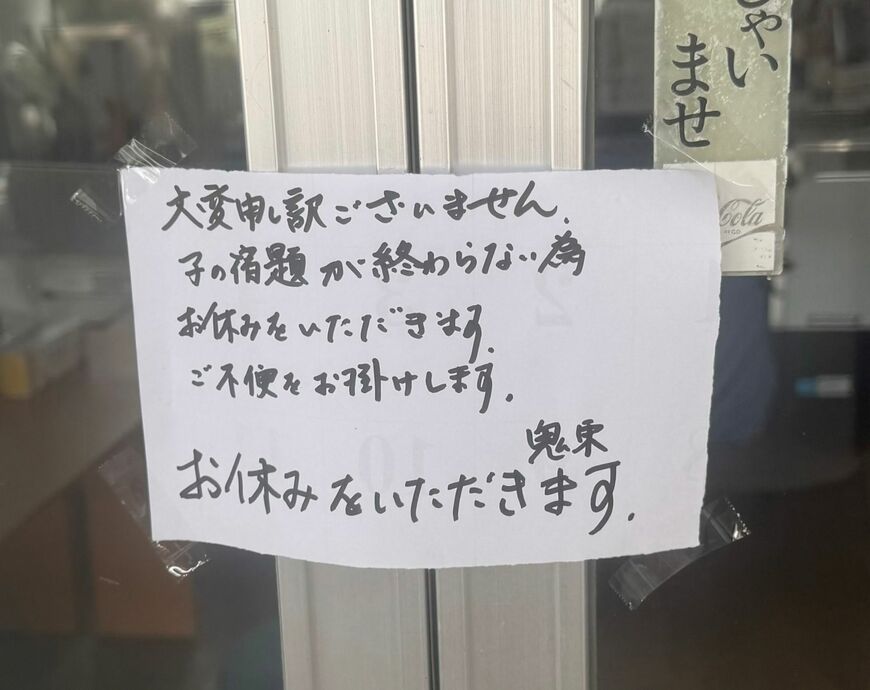 大変申し訳ございません。
子の宿題が終わらない為
お休みをいただきます。
ご不便をお掛けします。
鬼栗
お休みをいただきます。
しゃい
ませ
Cola